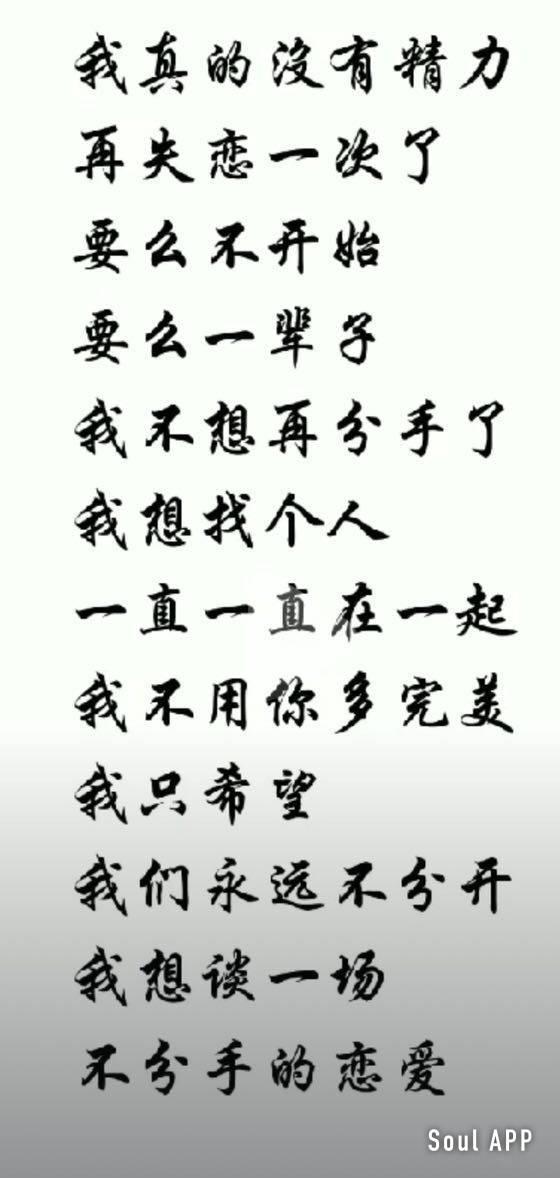 我真的没有精力
再失恋一次了
要么不开始
要么一辈子
我不想再分手了
我想找个人
一直一直在一起
我不用你多完美
我只希望
我们永远不分开
我想谈一场
不分手的恋爱
Soul APP